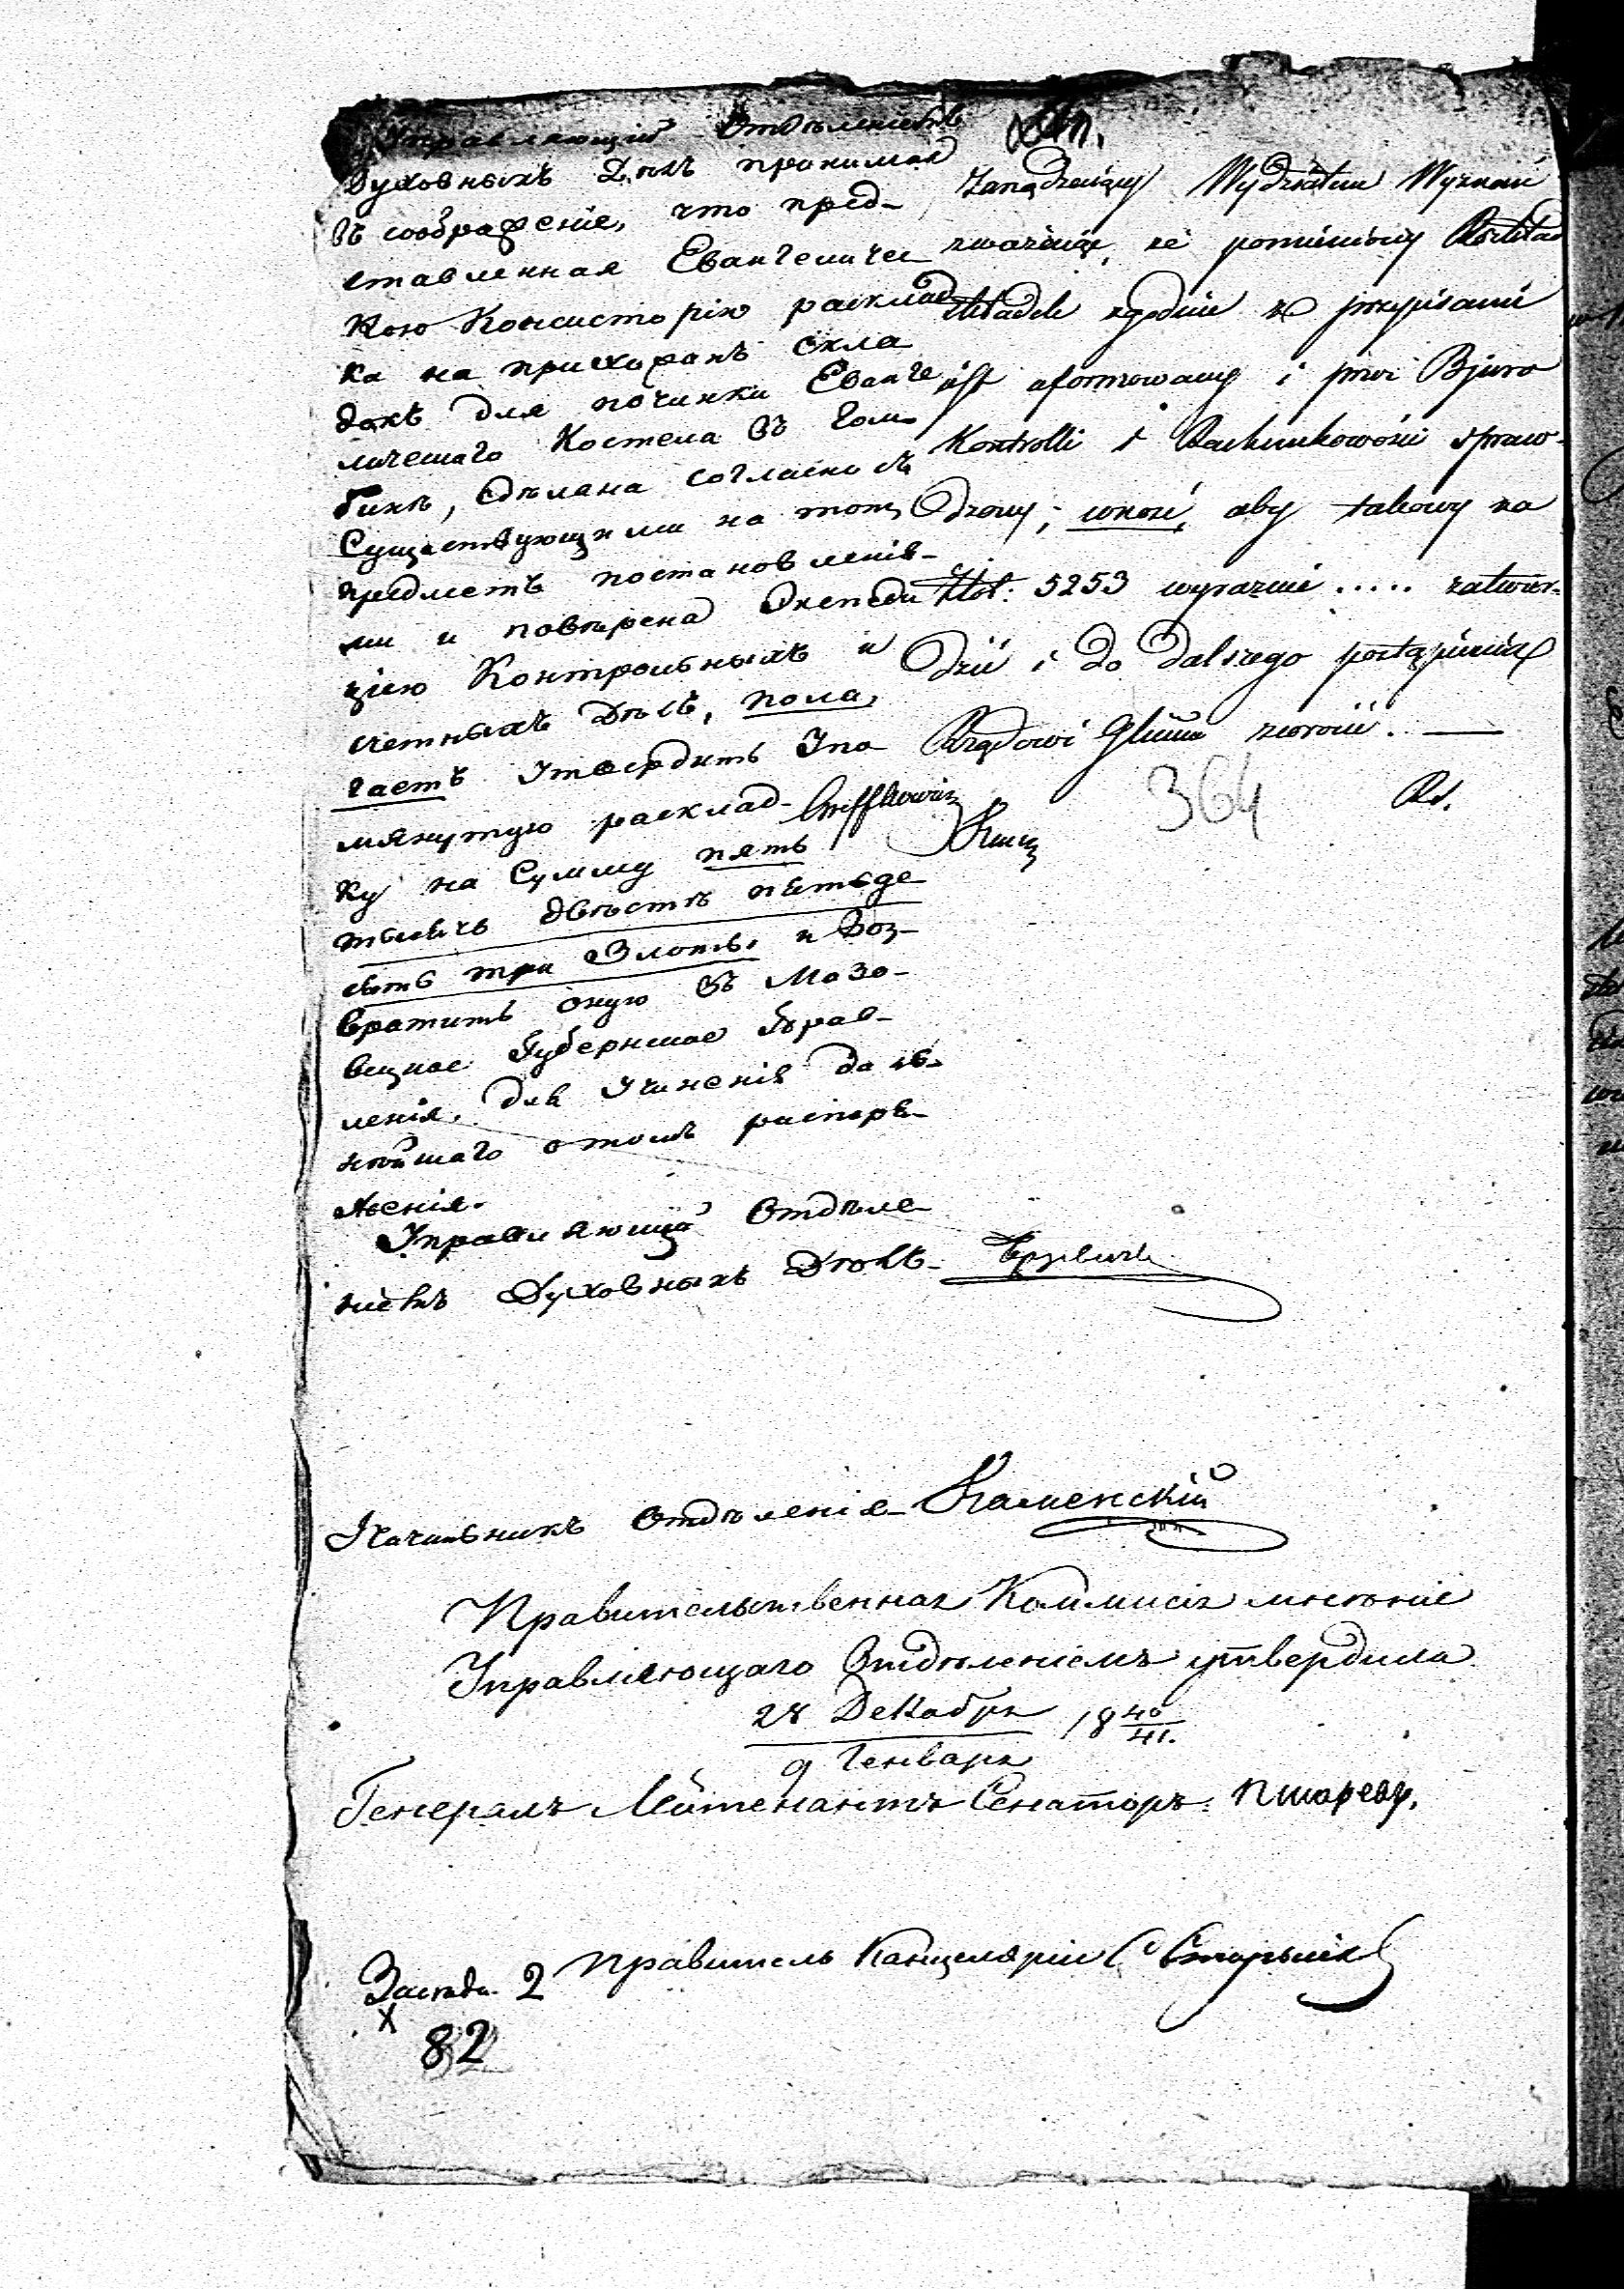 Управляющій Отдѣленіемъ
Духовныхъ Дѣлъ принимая
въ соображеніе, что пред-
ставленная Евангеличес
кою Консисторіею расклад
ка на прихожанъ скла
докъ для починки Еванге
лическаго Костела въ Гом-
бинѣ, сдѣлана согласно съ
существующими на тотъ
предметъ постановленія-
ми и повѣрена Экспеди
ціею Контрольныхъ и
счетныхъ Дѣлъ, пола,
гаетъ утвердить упо
мянутую расклад-
ку на сумму пять
тысячъ двѣстѣ пятьде
сятъ три Злотыхъ и воз-
вратить оную въ Мазо-
вецкое Губернское Прав-
ленія, для учиненія даль-
нѣйшаго о томъ распоря-
женія.
Управляющій Отдѣле
ніемъ Духовныхъ Дѣлъ
Zarządzaiący Wydziałem Wyznań
zważaiąc, że pomieniony Rozkład
składek zgodnie z przepisami
iest uformowany i przez Bjuro
Kontrolli i Rachunkowości spraw-
dzony; wnosi, aby takowy na
Złot: 5253 wyraźnie ..... zatwier-
dzić i do dalszego postąpienia
Rządowi Gbmu zwrócić. —
364
Начальникъ Отдѣленія Каменскій
Правительственная Коммисія мнѣніе
Управляющаго Отдѣленіемъ утвердила
28 Декабря 18 40/41.
9 Генваря
Генералъ Лейтенантъ Сенаторъ:
Правитель Канцеляріи
Засѣда 2
X
82